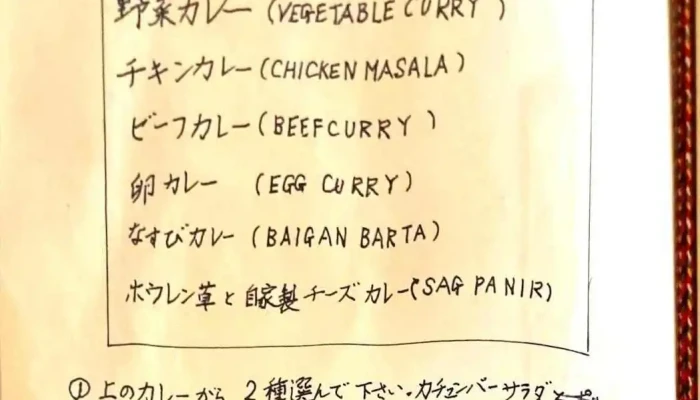 野菜カレー (VEGETABLE CURRY)
チキンカレー (CHICKEN MASALA)
ビーフカレー (BEEFCURRY)
卵カレー (EGG CURRY)
なすびカレー (BAIGAN BARTA)
ホウレン草と自家製チーズカレー (SAG PANIR)
① 上のカレーから 2種選んで下さい。カチュンバーサラダと